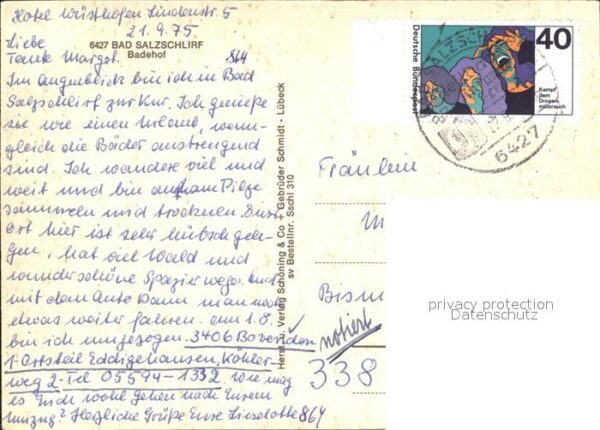 Hotel Wüsthofen Lindenstr. 5
21.9.75.
6427 BAD SALZSCHLIRF
Badehof
Liebe
Tante Margot. 864
Im Augenblick bin ich in Bad
Salzschlirf zur Kur. Ich genieße
sie wie einen Urlaub, wenn-
gleich die Bäder anstrengend
sind. Ich wandere viel und
weit und bin am Pilze
sammeln und trocknen. Der
Ort hier ist sehr hübsch gele-
gen, hat viel Wald und
wunderschöne Spazierwege. Und
mit dem Auto kann man noch
etwas weiter fahren. Am 1.8.
bin ich umgezogen. 3406 Bovenden
1-Ortsteil Eddigehausen, Köhler-
weg 2-Tel 05594-1332. Wie mag
es Euch wohl gehen nach Eurem
Umzug? Herzliche Grüße Eure Lieselotte 864
Herst. u. Verlag Schöning & Co + Gebrüder Schmidt - Lübeck
sv Bestellnr. Sschl 310
Deutsche Bundespost
40
Kampf
dem
Drogen-
mißbrauch
6427
Fräulein
M
Bism
notiert
338
privacy protection
Datenschutz